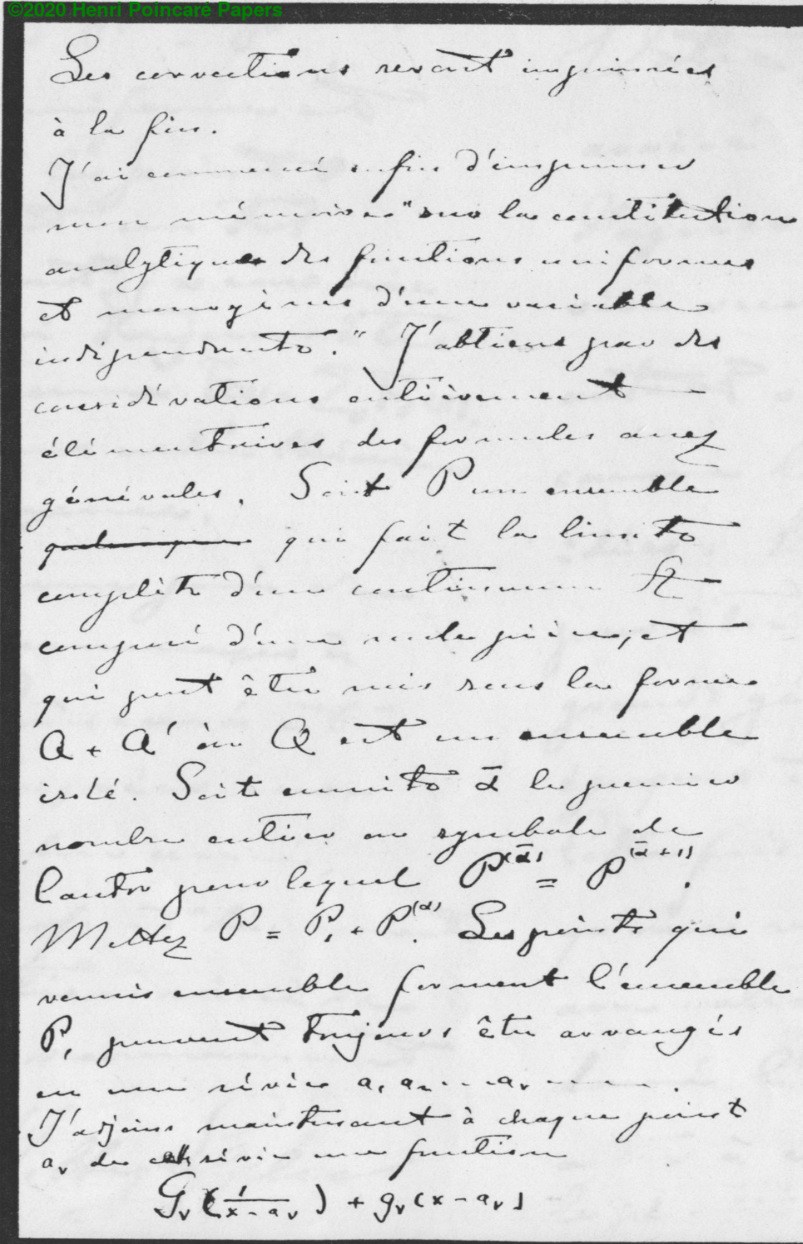 ©2020 Henri Poincaré Papers
Les corrections seront imprimées
à la fin.
J'ai commencé enfin d'imprimer
mon mémoire "sur la constitution
analytique des fonctions uniformes
et monogènes d'une variable
indépendante." J'obtiens par des
considérations entièrement
élémentaires des formules assez
générales. Soit P un ensemble
quelconque qui fait la limite
complète d'un continuum A
composé d'une seule pièce, et
qui peut être mis sous la forme
Q + Q' où Q est un ensemble
isolé. Soit ensuite ᾱ le premier
nombre entier ou symbole de
Cantor pour lequel P^(ᾱ) = P^(ᾱ+1).
Mettez P = P₁ + P^(α). Les points qui
réunis ensemble forment l'ensemble
P₁ peuvent toujours être arrangés
en une série a₁ a₂ --- aᵥ ---
J'adjoins maintenant à chaque point
aᵥ de cette série une fonction
Gᵥ(1/(x-aᵥ)) + gᵥ(x-aᵥ)